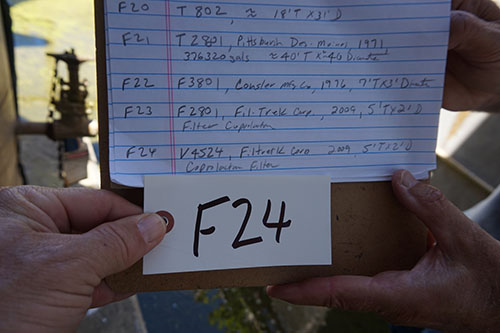 F20 T 802, ≈ 18'T X 31' D
F21 T 2801, Pittsburgh Des-Moines, 1971,
376320 gals ≈ 40' T X ≈ 40 Diameter
F22 F3801, Consler Mfg Co, 1976, 7'TX3' Diameter
F23 F2801, Fil-Trek Corp., 2009, 5'TX2' D
Filter Coagulator
F24 V4524, Filtrek Corp 2009, 5'TX2' D
Filter
F24